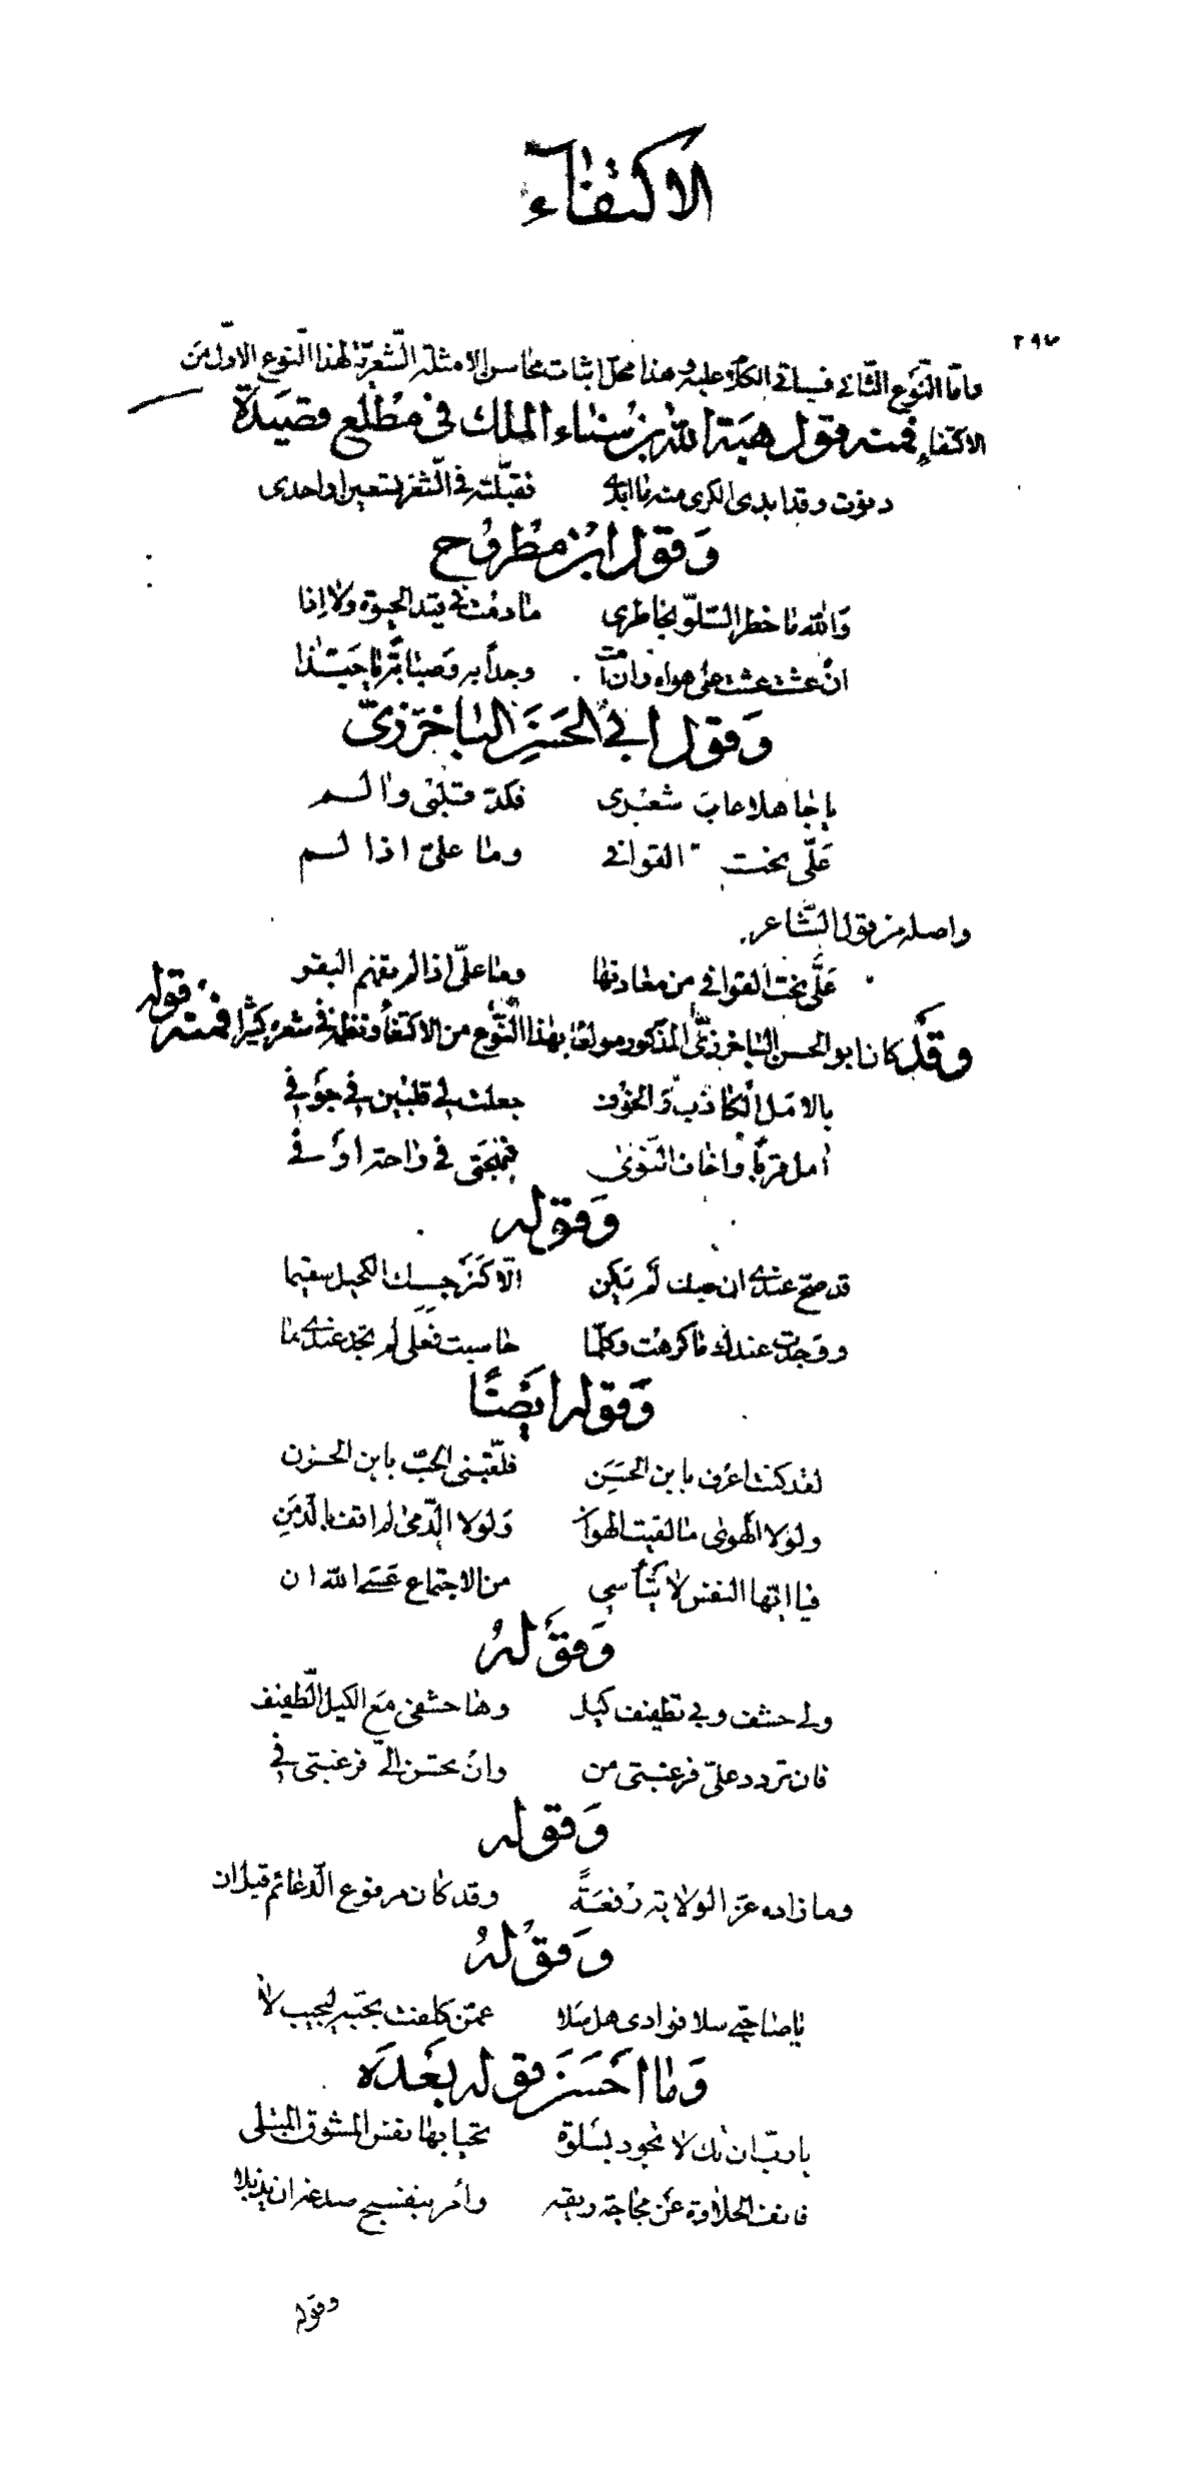 الاكتفاء
٢٩٧
واما النوع الثاني فسياتي الكلام عليه وهذا محل اثبات محاسن الامثلة الشعرية لهذا النوع الاول من
الاكتفاء فمنه قول هبة الله بن سناء الملك في مطلع قصيدة
دنوت وقد ابدى الكرى منه ما ابدى فقبلته في الثغر تسعين او احدى
وقول ابن مطروح
والله ما خطر السلو بخاطرى ما دمت في قيد الحيوة ولا اذا
ان عشت عشت على هواه وان امت وجدا به وصبابة يا حبذا
وقول ابي الحسن الباخرزي
يا جاهلا عاب شعرى فكد قلبى والم
على نحت القوافي وما على اذا لم
واصله من قول الشاعر
على نحت القوافي من معادنها وما على اذا لم يفهم البقر
وقد كان ابو الحسن الباخرزي المذكور مولعا بهذا النوع من الاكتفاء ونظمه في شعره كثيرا فمنه قوله
بالامل الكاذب والخوف جعلت لي قلبين في جوفي
امل قربا واخاف النوى فمهجتى في راحة او في
وقوله
قد صح عندى ان حبك لم يكن الا كنرجسك الكحيل سقيما
ووجدت عندك ما كرهت وكلما حاسبت فعلى لم تجد عندى ما
وقوله ايضا
لقد كنت اعرف بابن الحسن فلقبنى الحب بابن الحزن
ولولا الهوى ما لقيت الهوان ولولا الدمى لم اقف بالدمن
فيا ايها النفس لا تياسى من الاجتماع عسى الله ان
وقوله
ولى حشف وبى تطفيف كيل وها حشفى مع الكيل الطفيف
فان تردد على فرغبتى من وان تحسن الى فرغبتى في
وقوله
وما زاده عز الولاية رفعة وقد كان مرفوع الدعائم قبل ان
وقوله
يا صاحبى سلا فوادى هل سلا عمن كلفت بحبه ليجيب لا
وما احسن قوله بعده
يا رب ان تك لا تجود بسلوة تحيا بها نفس المشوق المبتلى
فانف الحلاوة عن مجاجة ريقه وأمر بنفسج صدغه ان يذبلا
وقوله